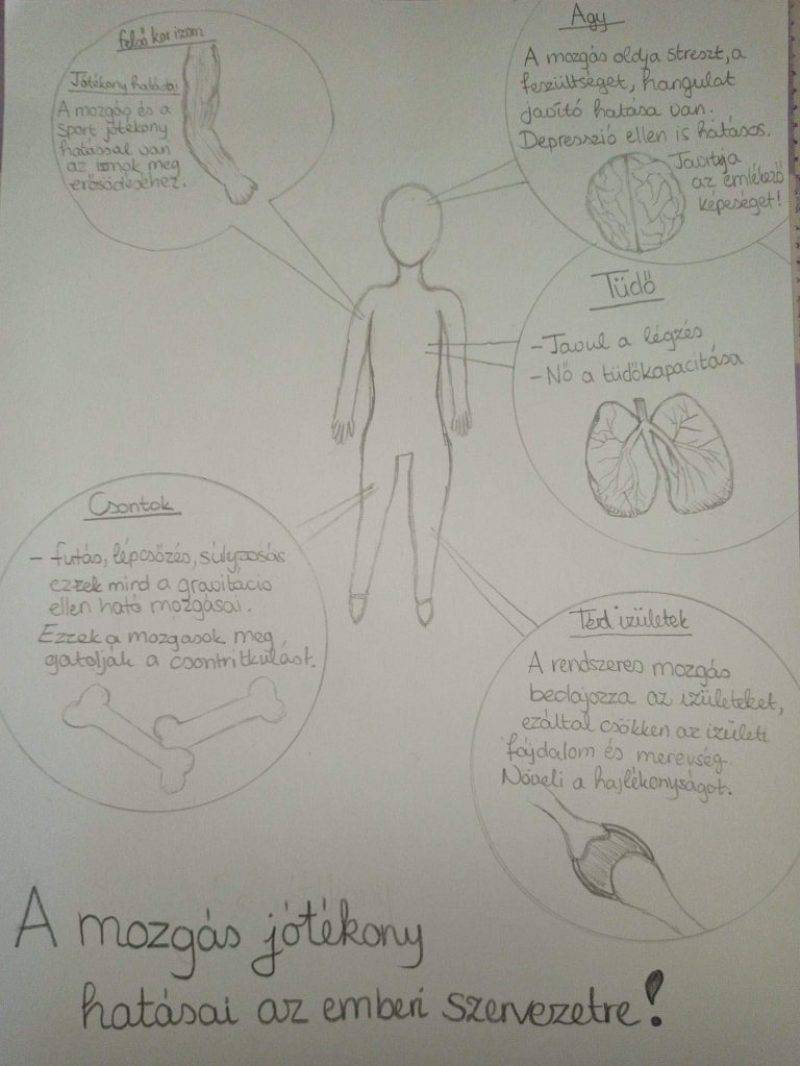 felső kar izom
Jótékony hatásai:
A mozgás és a
sport jótékony
hatással van
az izmok meg
erősödéséhez.
Agy
A mozgás oldja stresztt, a
feszültséget, hangulat
javító hatása van.
Depresszió ellen is hatásos.
Javítja
az emlékező
képeséget!
Tüdő
- Javul a légzés
- Nő a tüdőkapacitása
Csontok
- futás, lépcsőzés, súlyzosás
ezzek mind a gravitácio
ellen ható mozgásai.
Ezzek a mozgasok meg
gatolják a csontritkulást.
Térd izületek
A rendszeres mozgás
beolajozza az izületeket,
ezáltal csökken az izületi
fájdalom és merevség.
Növeli a hajlékonyságot.
A mozgás jótékony
hatásai az emberi szervezetre!